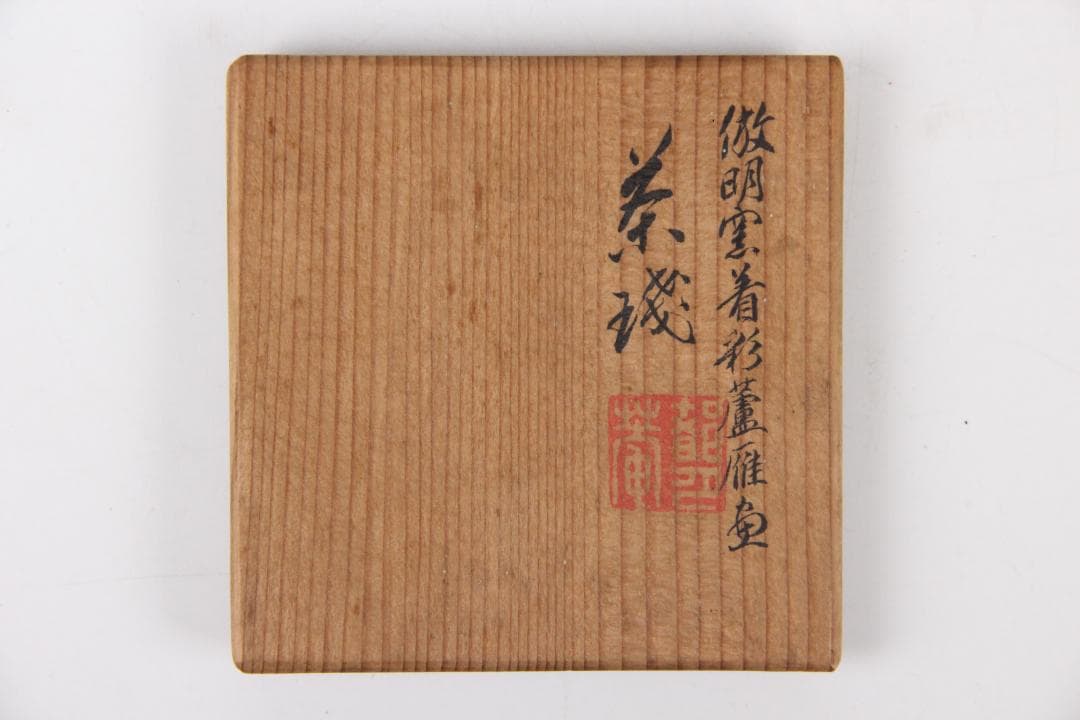 倣明窯着彩蘆雁画
茶琖